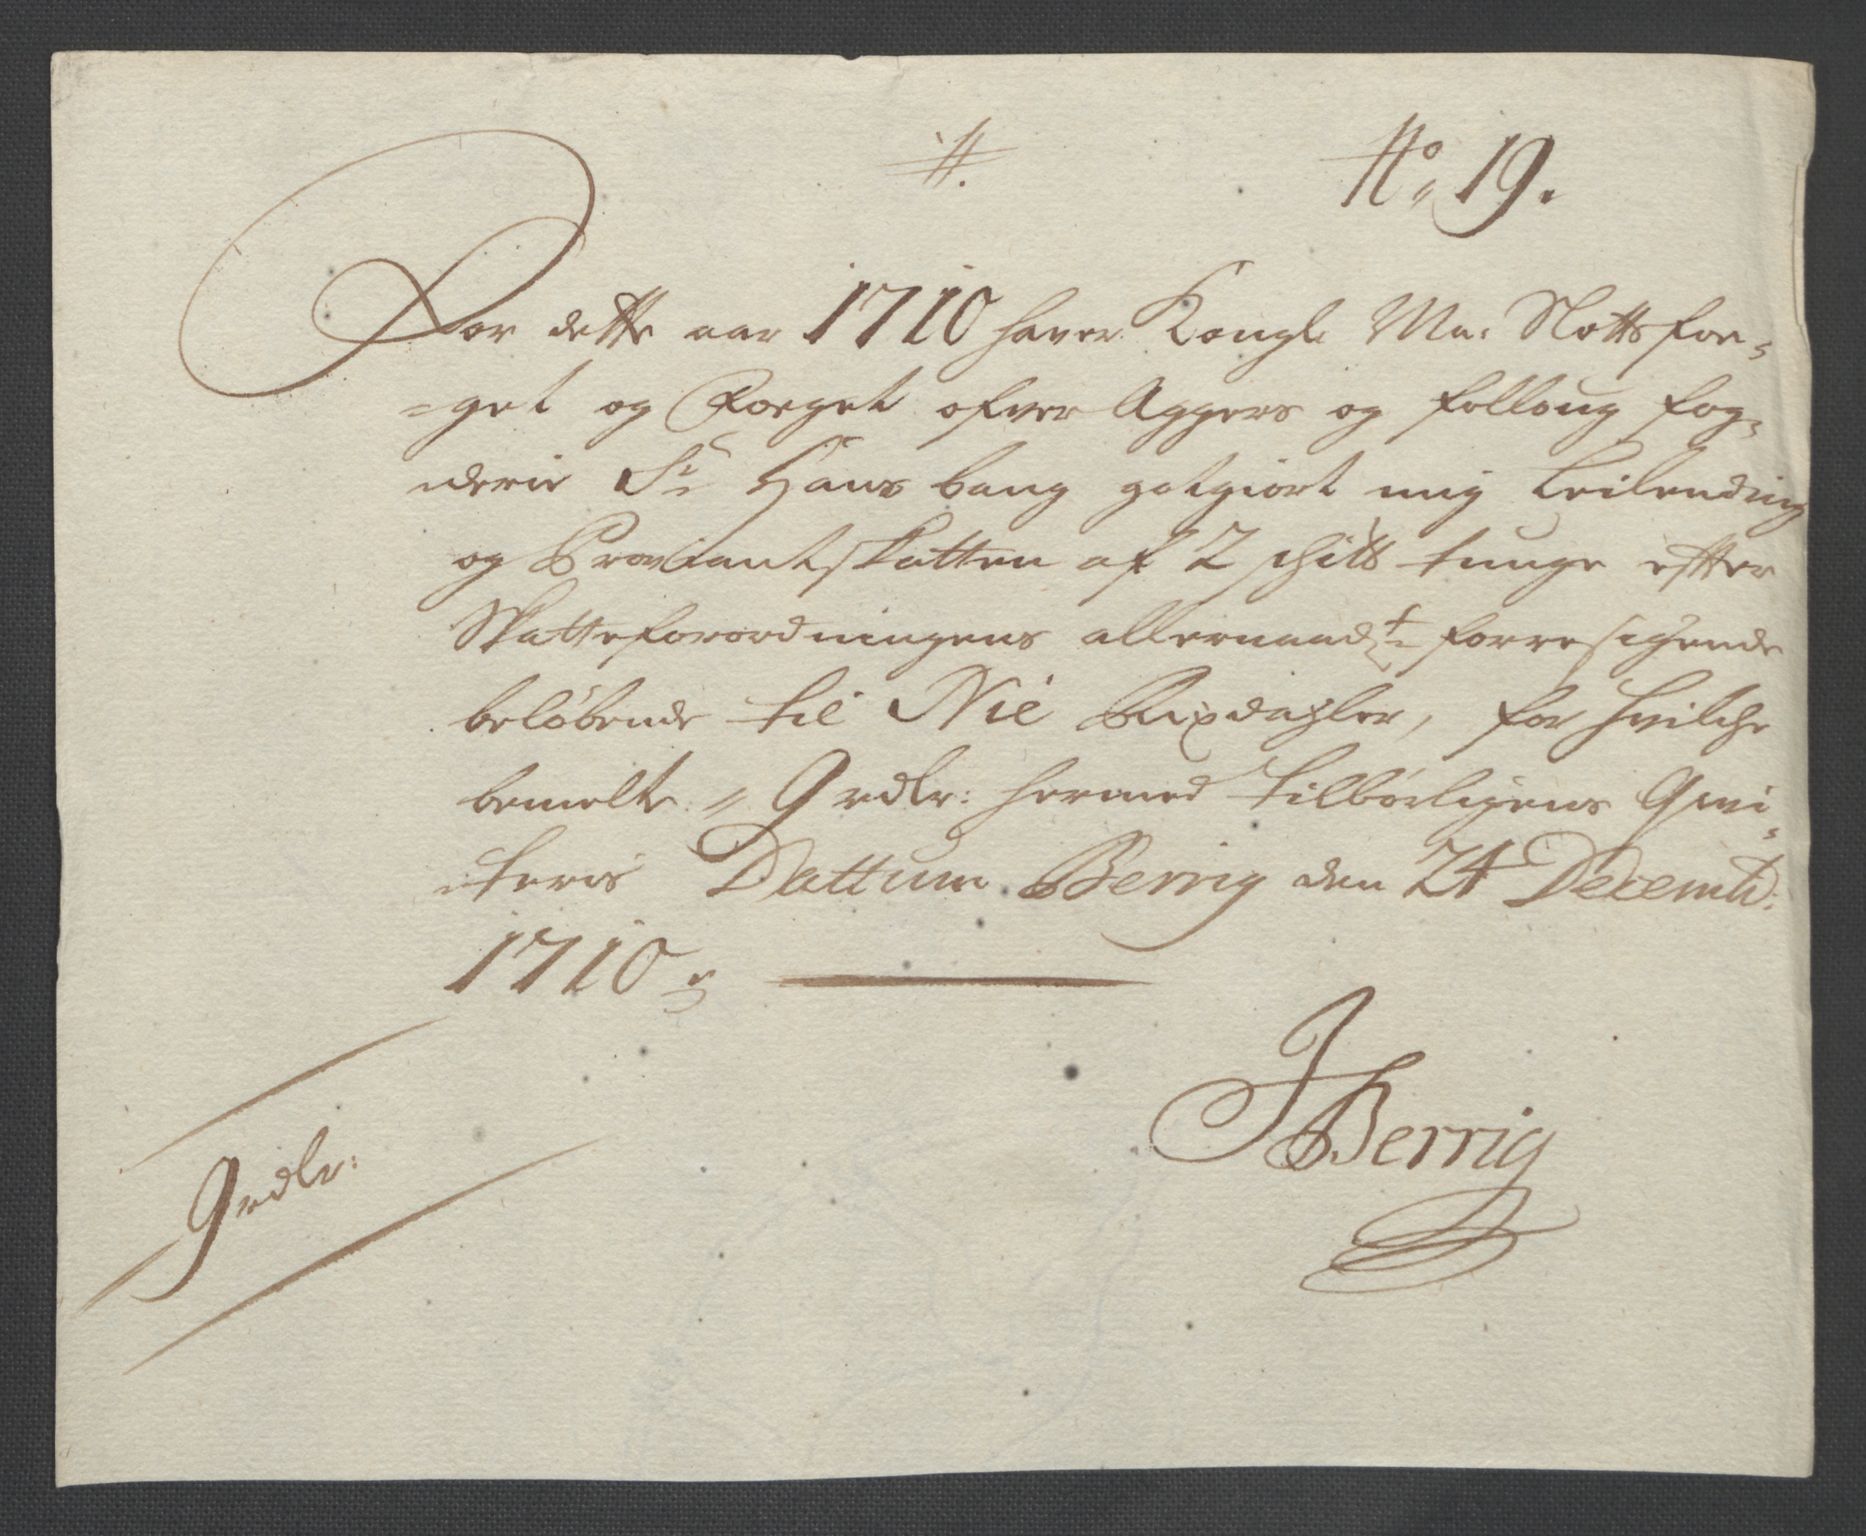 No 19.
For dette aar 1710 haver Kongl: Ma: Slottsfoe-
=get og Foeget ofver Aggers og Folloug fog-
derie Sr Hans bang gotgiort mig Leilending
og Proviantskatten af 2 schils tunge effter
Skatteforordningens allernaadste forresigende
beløbende til Nie Rixdahler, for hvilche
bemelte 9 rdlr: hermed tilbørligens Qvi-
teris Dattum Berrig den 24 Decemb:
1710
JBerrig
9 rdlr: